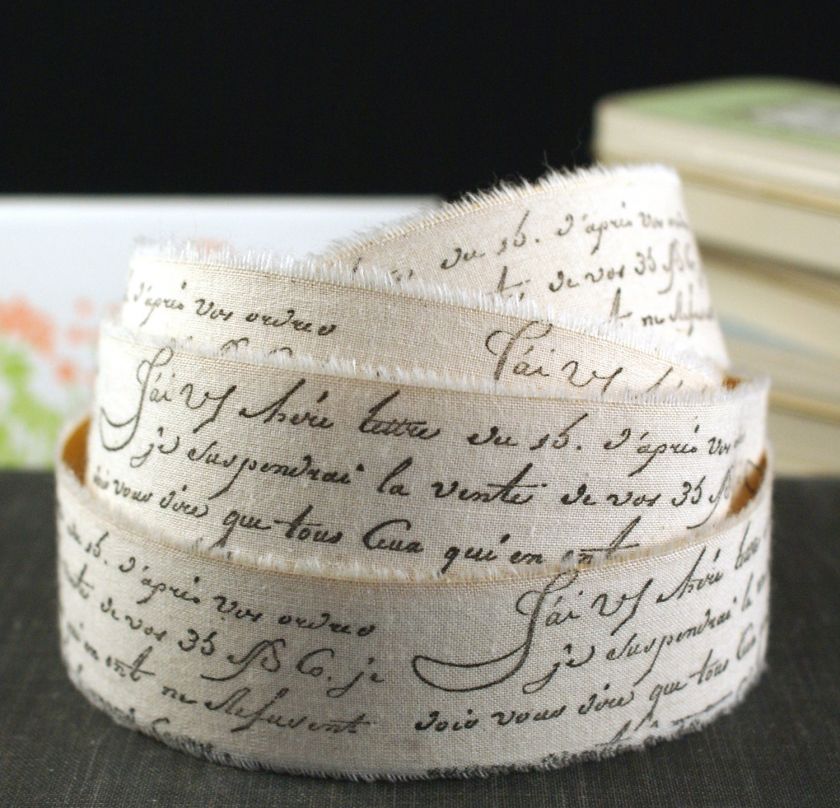 du 15. D'après vos
de vos 35
ne Refusent
D'après vos ordres J'ai
J'ai vs chère lettre du 15. D'après vos
je suspendrai la vente de vos 35
vous dire que tous Ceux qui en ont
du 15. D'après vos ordres
de vos 35 Co. je
qui en ont ne Refusent
J'ai vs chère
je suspendrai la
dois vous dire que tous Ceux